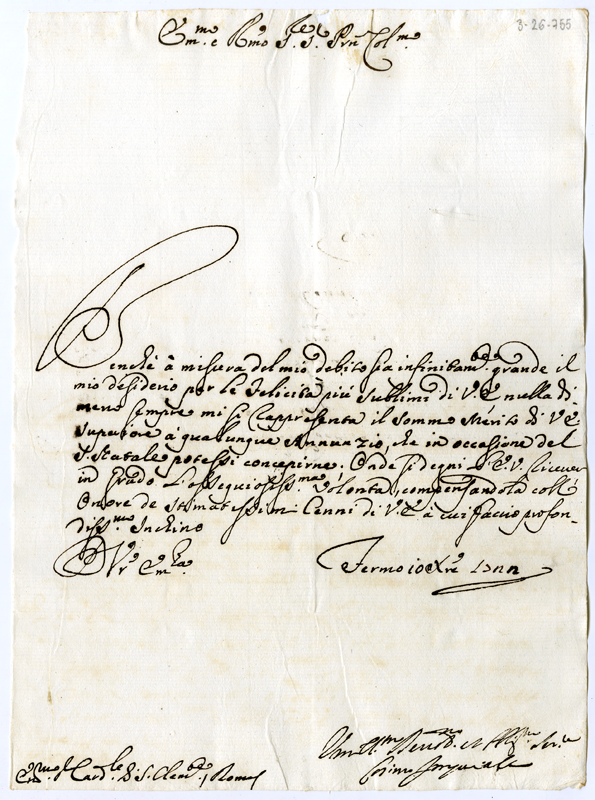 3-26-755
Em.mo e R.mo Sig.r Sig.r Prn Col.mo
Benchè à misura del mio debito sia infinitam.te grande il
mio desiderio per le Felicità più sublimi di V.E. nulla di-
meno sempre mi si rappresenta il sommo Merito di V.E.
superiore à qualunque Annunzio, che in occasione del
S. Natale potessi concepirne. Onde si degni l'E.V. ricever
in grado l'ossequiosiss.ma Volontà, compensandola coll'
Onore de stimatissimi Cenni di V.E. à cui faccio profon-
diss.mo Inchino
Di V.ra Em.za
Fermo 10 Xre
Em.mo Card.le di S. Clem.te, Roma
Um.mo Dev.mo et Obl.mo Ser.re